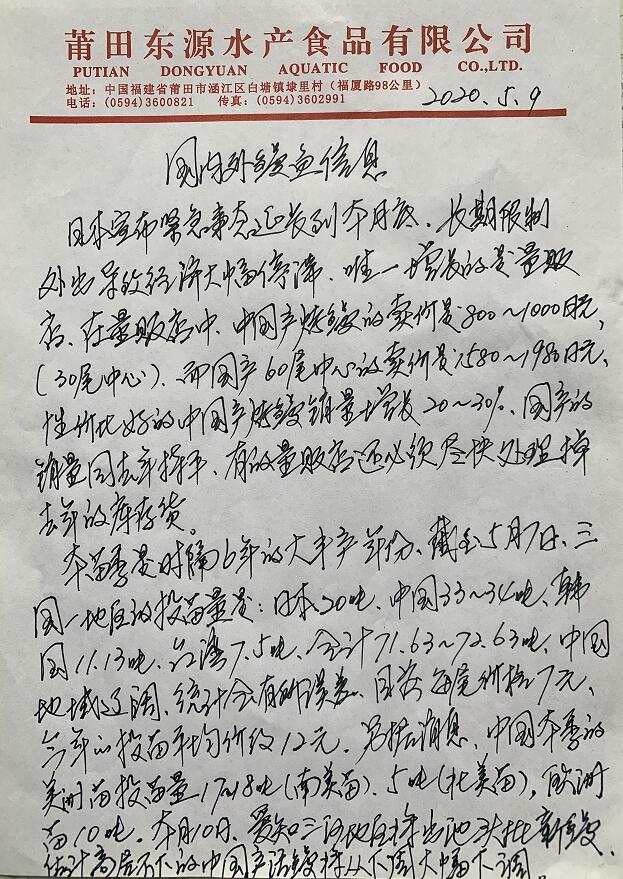 莆田东源水产食品有限公司
PUTIAN DONGYUAN AQUATIC FOOD CO.,LTD.
地址：中国福建省莆田市涵江区白塘镇埭里村（福厦路98公里）
电话：(0594)3600821 传真：(0594)3602991
2020.5.9
国内外鳗鱼信息
日本宣布紧急事态延长到本月底，长期限制
外出导致经济大幅停滞，唯一增长的是量贩
店，在量贩店中，中国产烤鳗的卖价是800～1000日元，
(30尾中心)，而国产60尾中心的卖价是1580～1980日元，
性价比好的中国产烤鳗销量增长20～30%，国产的
销量同去年持平，有的量贩店还必须尽快处理掉
去年的库存货。
本苗季是时隔6年的大丰产年份，截至5月7日，三
国一地区的投苗量是：日本20吨，中国33～34吨，韩
国11.13吨，台湾7.5吨，合计71.63～72.63吨，中国
地域辽阔，统计会有所误差，目前每尾价格7元，
今年的投苗平均价约12元，另据消息，中国本季的
美洲苗投苗量17~18吨(南美苗)，5吨(北美苗)，欧洲
苗10吨。本月10日，爱知三河地区将出池头批新鳗，
估计高居不下的中国产活鳗将从下周大幅下调。